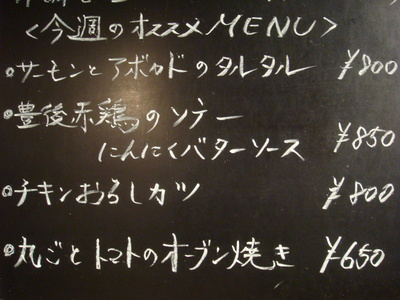 <今週のオススメMENU>
・サーモンとアボカドのタルタル ¥800
・豊後赤鶏のソテー
にんにくバターソース ¥850
・チキンおろしカツ ¥800
・丸ごとトマトのオーブン焼き ¥650